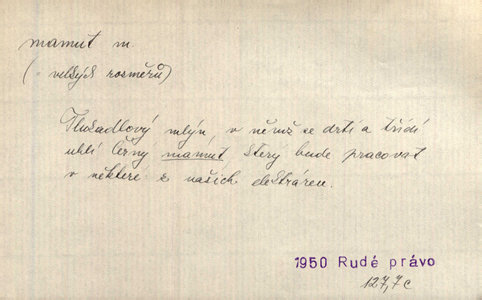 mamut m.
(: velkých rozměrů)
Tlukadlový mlýn, v němž se drtí a třídí
uhlí Černý mamut, který bude pracovat
v některé z našich elektráren.
1950 Rudé právo
127,7c